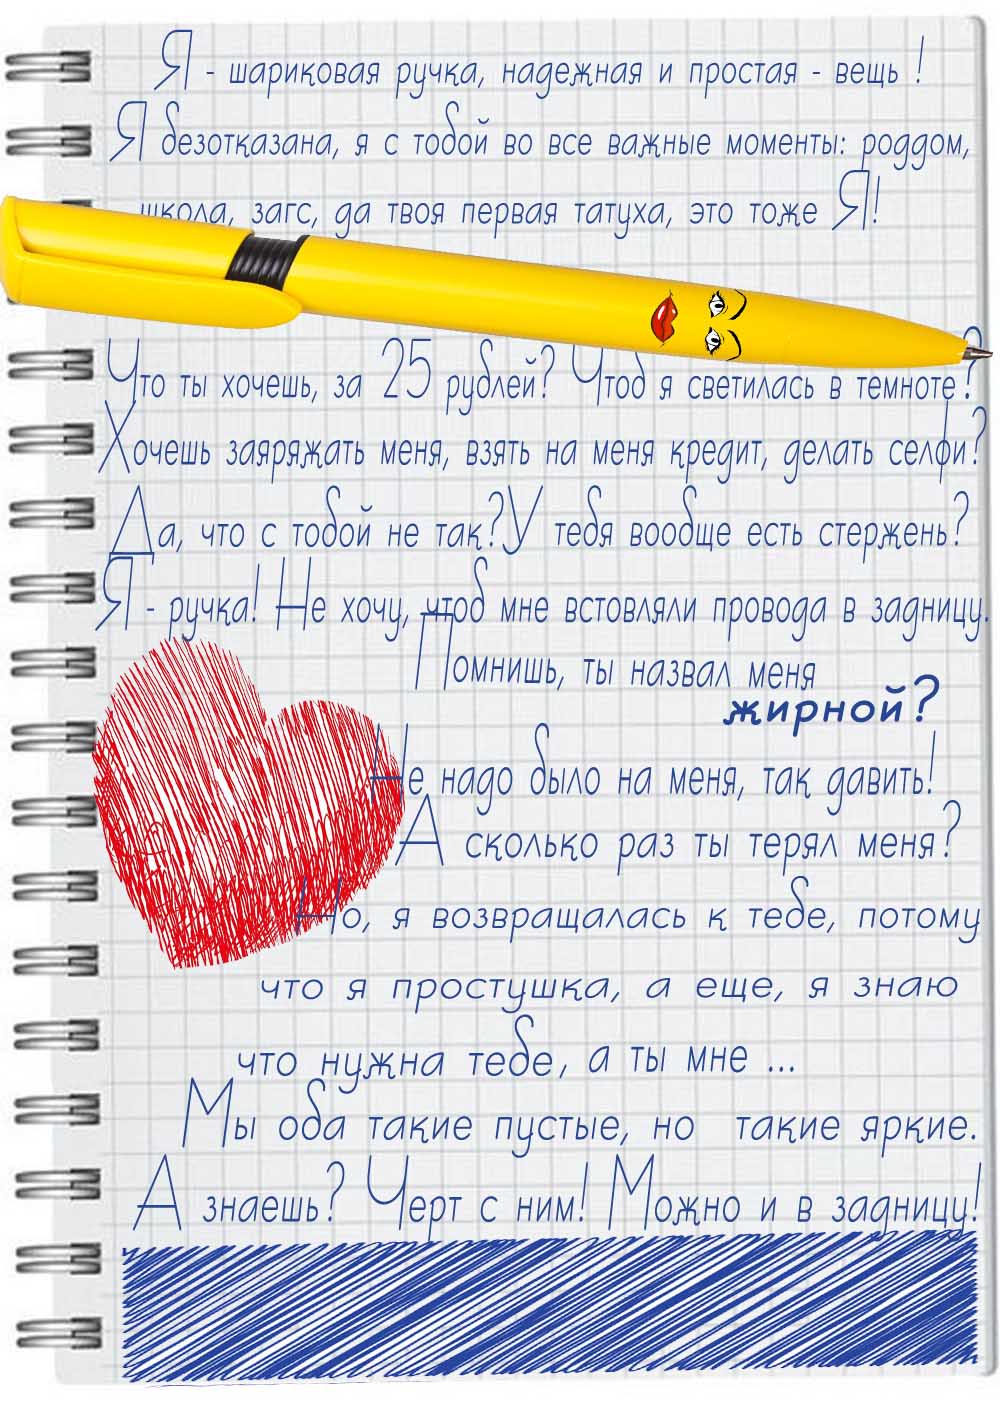 Я - шариковая ручка, надежная и простая - вещь !
Я безотказана, я с тобой во все важные моменты: роддом,
школа, загс, да твоя первая татуха, это тоже Я!
Что ты хочешь, за 25 рублей? Чтоб я светилась в темноте?
Хочешь заяряжать меня, взять на меня кредит, делать селфи?
Да, что с тобой не так?У тебя вообще есть стержень?
Я - ручка! Не хочу, чтоб мне встовляли провода в задницу.
Помнишь, ты назвал меня
жирной?
Не надо было на меня, так давить!
А сколько раз ты терял меня?
Но, я возвращалась к тебе, потому
что я простушка, а еще, я знаю
что нужна тебе, а ты мне ...
Мы оба такие пустые, но такие яркие.
А знаешь? Черт с ним! Можно и в задницу!